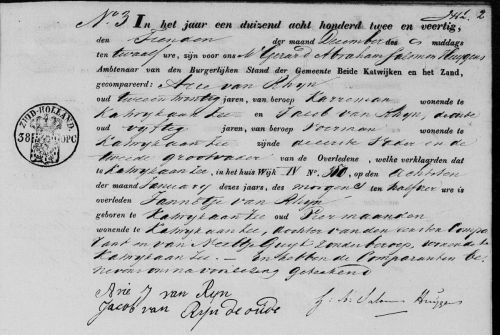 No. 3 In het jaar een duizend acht honderd twee en veertig,
den Tienden der maand des middags
ten twaalf ure, zijn voor ons Mr Gerard Abraham Salomon Huygens
Ambtenaar van den Burgerlijken Stand der Gemeente Beide Katwijken en het Zand,
gecompareerd: Arie van Rhijn
oud twee en dertig jaren, van beroep wonende te
Katwijk aan Zee en Jacob van Rhijn, de oude
oud vijftig jaren, van beroep wonende te
Katwijk aan Zee zijnde de eerste Vader en de
tweede grootvader van de Overledene, welke verklaarden dat
te Katwijk aan Zee, in het huis Wijk IV No. op den Achtsten
der maand January dezes jaars, des morgens ten half ure is
overleden Jannetje van Rhijn
geboren te Katwijk aan Zee oud maanden
wonende te Katwijk aan Zee, dochter van den eersten Compa
rant en van Neeltje zonder beroep, wonende te
Katwijk aan Zee. — En hebben de Comparanten be
nevens ons na voorlezing geteekend
Arie J van Ryn
Jacob van Ryn de oude
Huygens
ZUID-HOLLAND